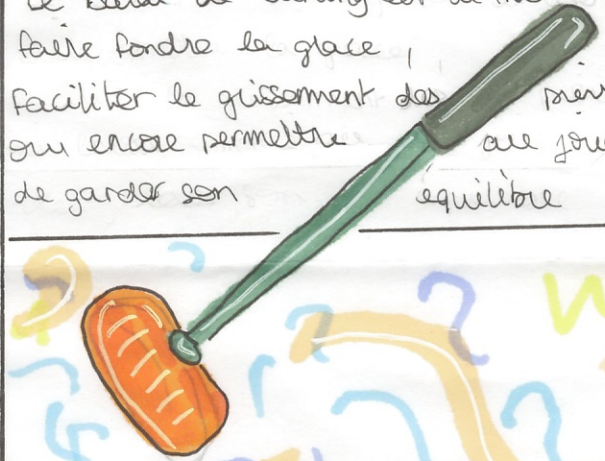 Le balai de curling
faire fondre la glace,
faciliter le glissement des
ou encore permettre au
de garder son équilibre